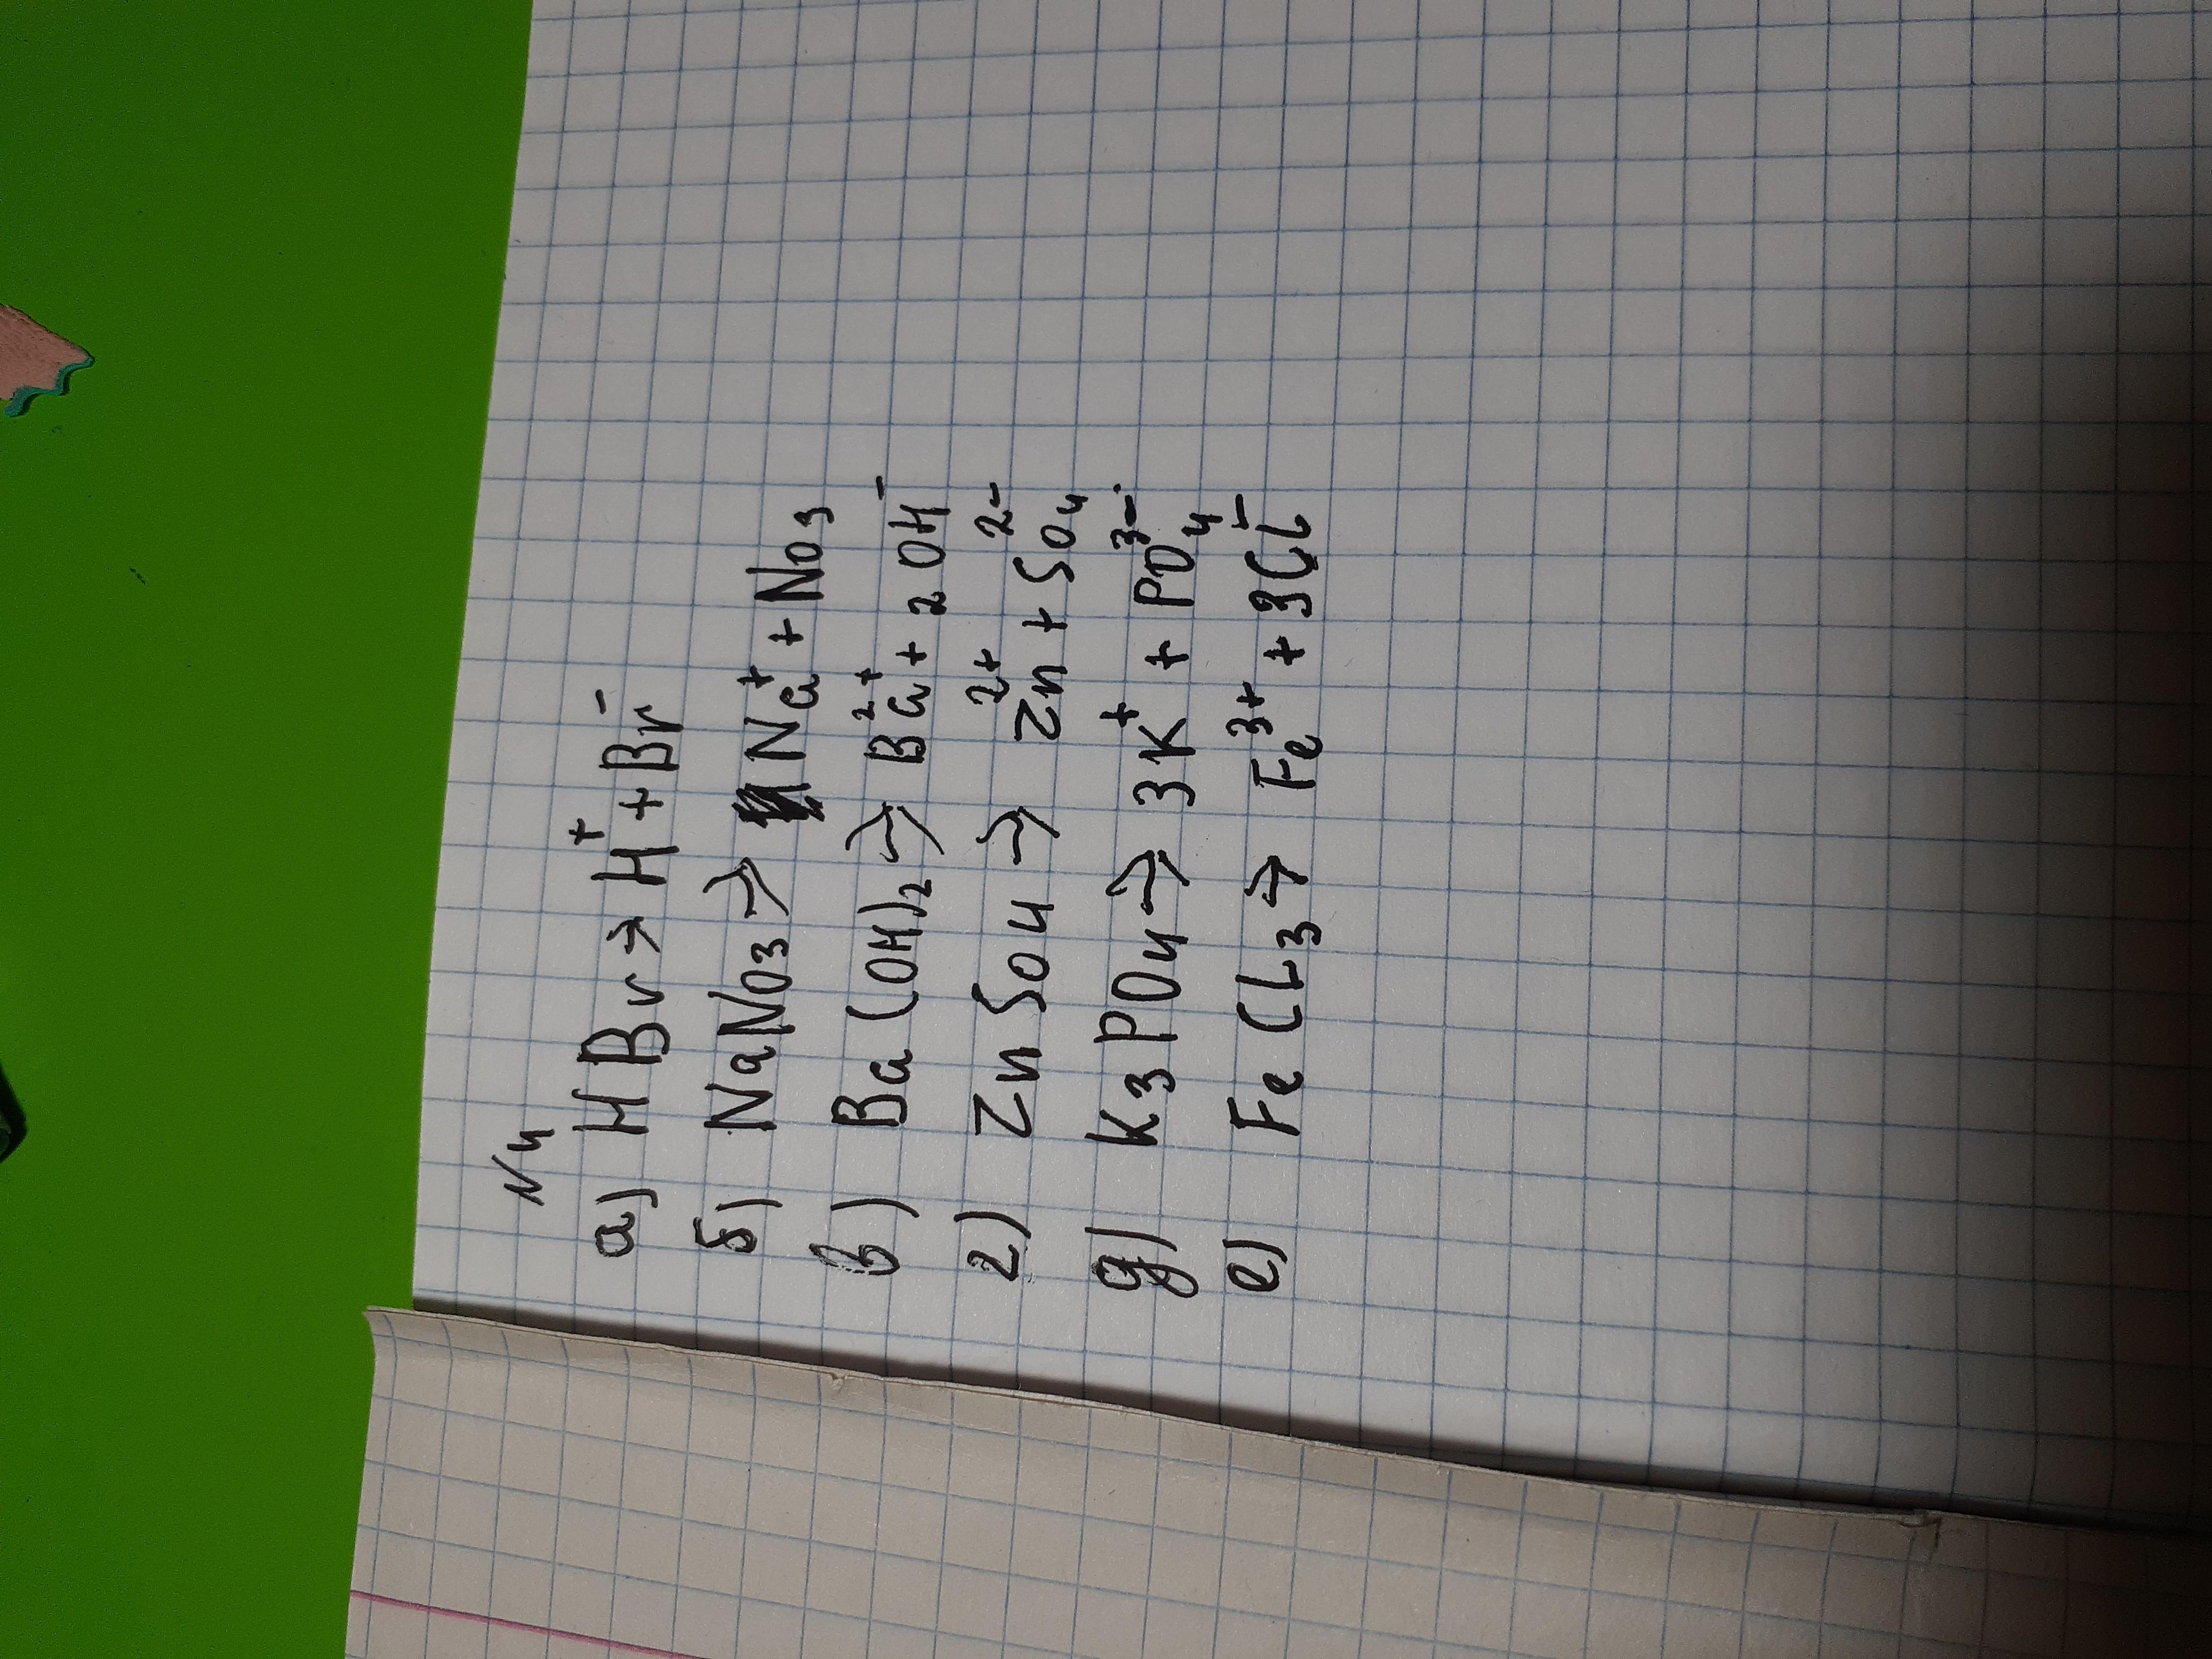 N4
а) HBr → H⁺ + Br⁻
б) NaNo₃ → Na⁺ + No₃
в) Ba(OH)₂ → Ba²⁺ + 2OH⁻
г) ZnSo₄ → Zn²⁺ + So₄²⁻
д) K₃PO₄ → 3K⁺ + PO₄³⁻
е) FeCl₃ → Fe³⁺ + 3Cl⁻